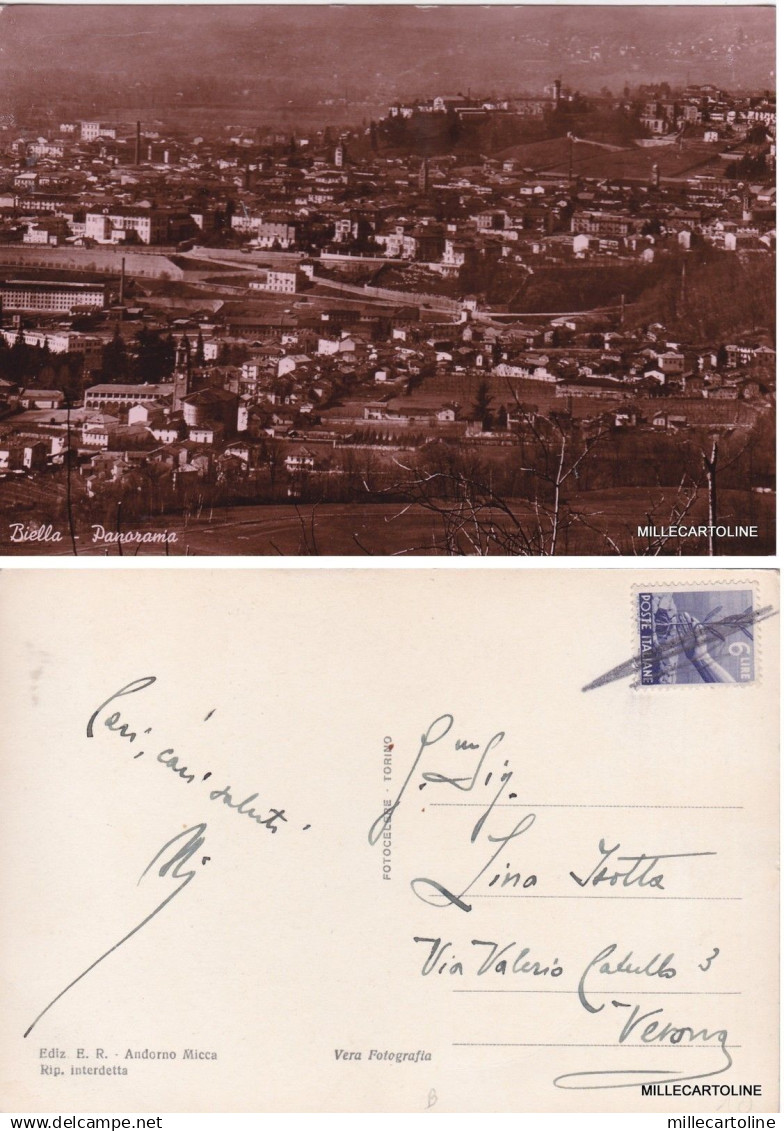 Biella - Panorama
MILLECARTOLINE
POSTE ITALIANE
6 LIRE
Cari, cari saluti
FOTOCELERE - TORINO
G.ma Sig.
Lina Isotta
Via Valerio Catullo 3
Verona
Ediz E. R. - Andorno Micca
Rip. interdetta
Vera Fotografia
B
MILLECARTOLINE
millecartoline
www.delcampe.net
millecartoline